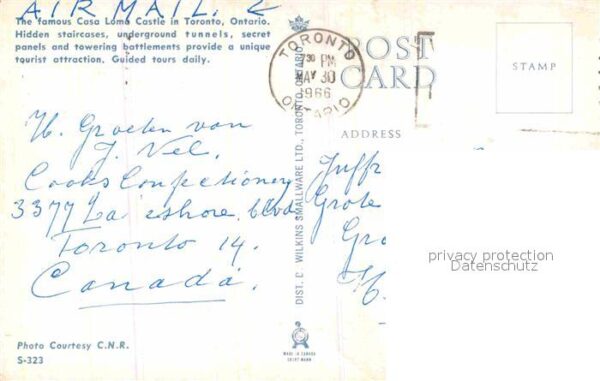 AIR MAIL.
The famous Casa Loma Castle in Toronto, Ontario.
Hidden staircases, underground tunnels, secret
panels and towering battlements provide a unique
tourist attraction. Guided tours daily.
H. Groeten van
J. Vel.
Cooks Confectionery
3377 Lakeshore blvd
Toronto 14.
Canada.
Photo Courtesy C.N.R.
S-323
DIST. C WILKINS SMALLWARE LTD., TORONTO, ONTARIO
MADE IN CANADA
TORONTO
30 PM
MAY 30
1966
ONTARIO
POST
CARD
STAMP
ADDRESS
Juff
Grote
Gro
H.
privacy protection
Datenschutz